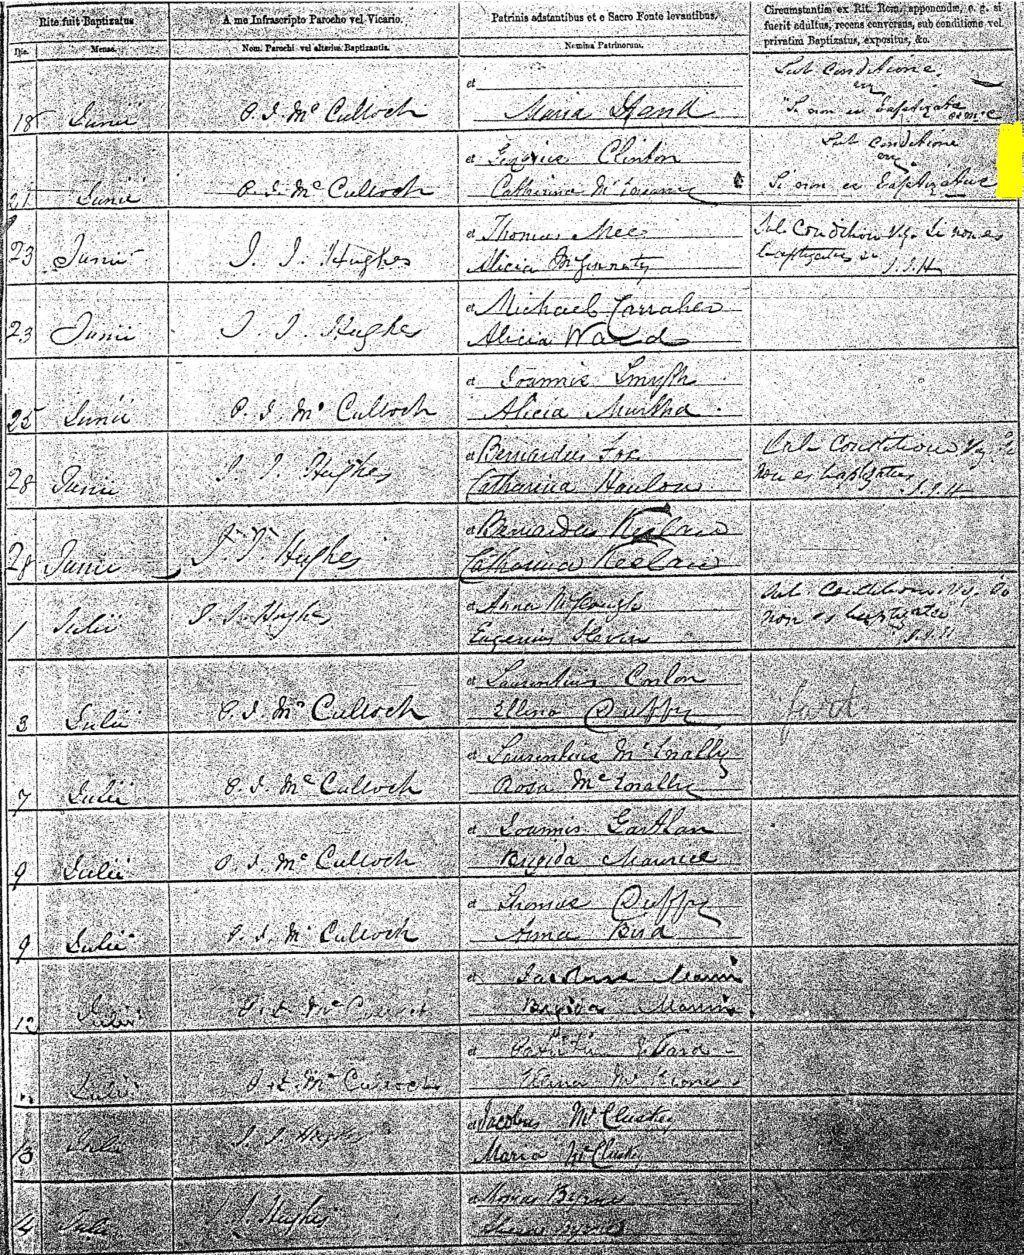 Rite fuit Baptizatus
A me Infrascripto Parocho vel Vicario.
Patrinis adstantibus et e Sacro Fonte levantibus.
Circumstantiæ ex Rit. Rom. apponendæ, e. g. si
fuerit adultus, recens conversus, sub conditione vel
privatim Baptizatus, expositus, &c.
Die.
Mense.
Nom. Parochi vel alterius Baptizantis.
Nomina Patrinorum.
et
Sub conditione
18 Junii P. J. McCulloch Maria Hand
Si non es baptizata
et Clinton
Sub conditione
21 Junii P. J. McCulloch Catharina
Si non es baptizatus
23 Junii J. J. Hughes
et Thomas Mee
Alicia McGinnaty
Sub Condition Vz. Si non es
baptizatus
J. J. H
23 Junii J. J. Hughes
et Michael Carraher
Alicia Ward
25 Junii P. J. McCulloch
et Joannis Smyth
Alicia Murtha
28 Junii J. J. Hughes
et Bernardus Fox
Catharina Hanlon
Sub Condition Vz. Si
non es baptizatus
J. J. H
28 Junii J. J. Hughes
et Bernardus
Catharina
1 Julii J. J. Hughes
et Anna
Eugenius Slevin
Sub Condition Vz. Si
non es baptizatus
J. J. H
3 Julii P. J. McCulloch
et Laurentius Conlon
Ellena Duffy
7 Julii P. J. McCulloch
et Laurentius McEnally
Rosa McEnally
9 Julii P. J. McCulloch
et Joannis Garthlan
Brigida Maurice
9 Julii P. J. McCulloch
et Thomas Duffy
Anna Bird
12 Julii P. J. McCulloch
et
Brigida
" Julii P. J. McCulloch
et
13 Julii J. J. Hughes
et Jacobus McCluskey
Maria McCluskey
14 Julii J. J. Hughes
et Thomas Byrne
Byrne